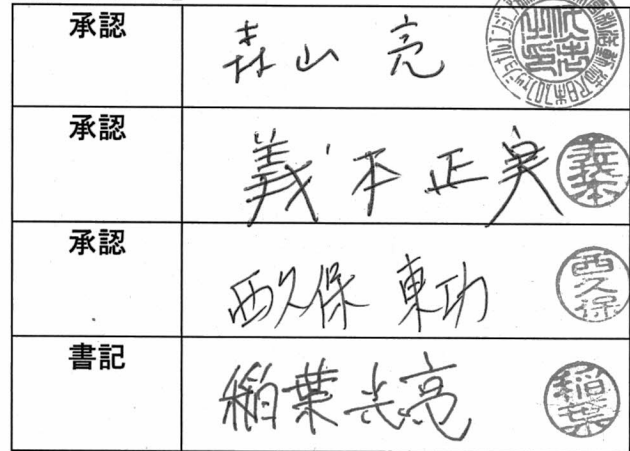 承認 森山 亮
承認 義本 正実 義本
承認 西久保 東功 西久保
書記 稲葉 光亮 稲葉